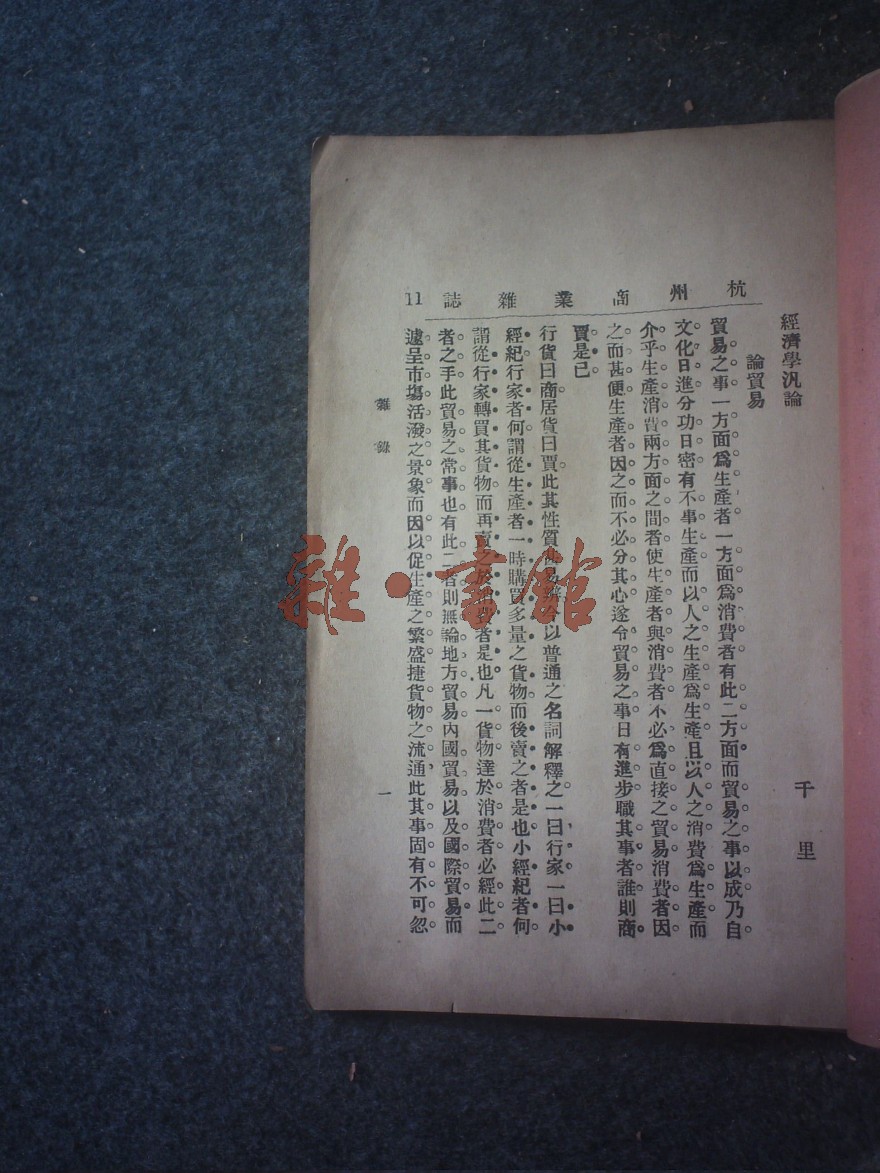 杭州商業雜誌 11
經濟學汎論
千里
論貿易
貿易之事一方面爲生產者一方面爲消費者有此二方面而貿易之事以成乃自
文化日進分功日密有不事生產而以人之生產爲生產且以人之消費爲生產而
介乎生產消費兩方面之間者使生產者與消費者不必爲直接之貿易消費者因
之而甚便生產者因之而不必分其心遂令貿易之事日有進步職其事者誰則商
賈是已
行貨曰商居貨曰賈此其性質易今以普通之名詞解釋之一曰行家一曰小
經紀行家者何謂從生產者一時購買多量之貨物而後賣之者是也小經紀者何
謂從行家轉買其貨物而再賣之於消費者是也凡一貨物達於消費者必經此二
者之手此貿易之常事也有此二者則無論地方貿易內國貿易以及國際貿易而
遽呈市塲活潑之景象而因以促生產之繁盛捷貨物之流通此其事固有不可忽
雜錄
一
雜·書館